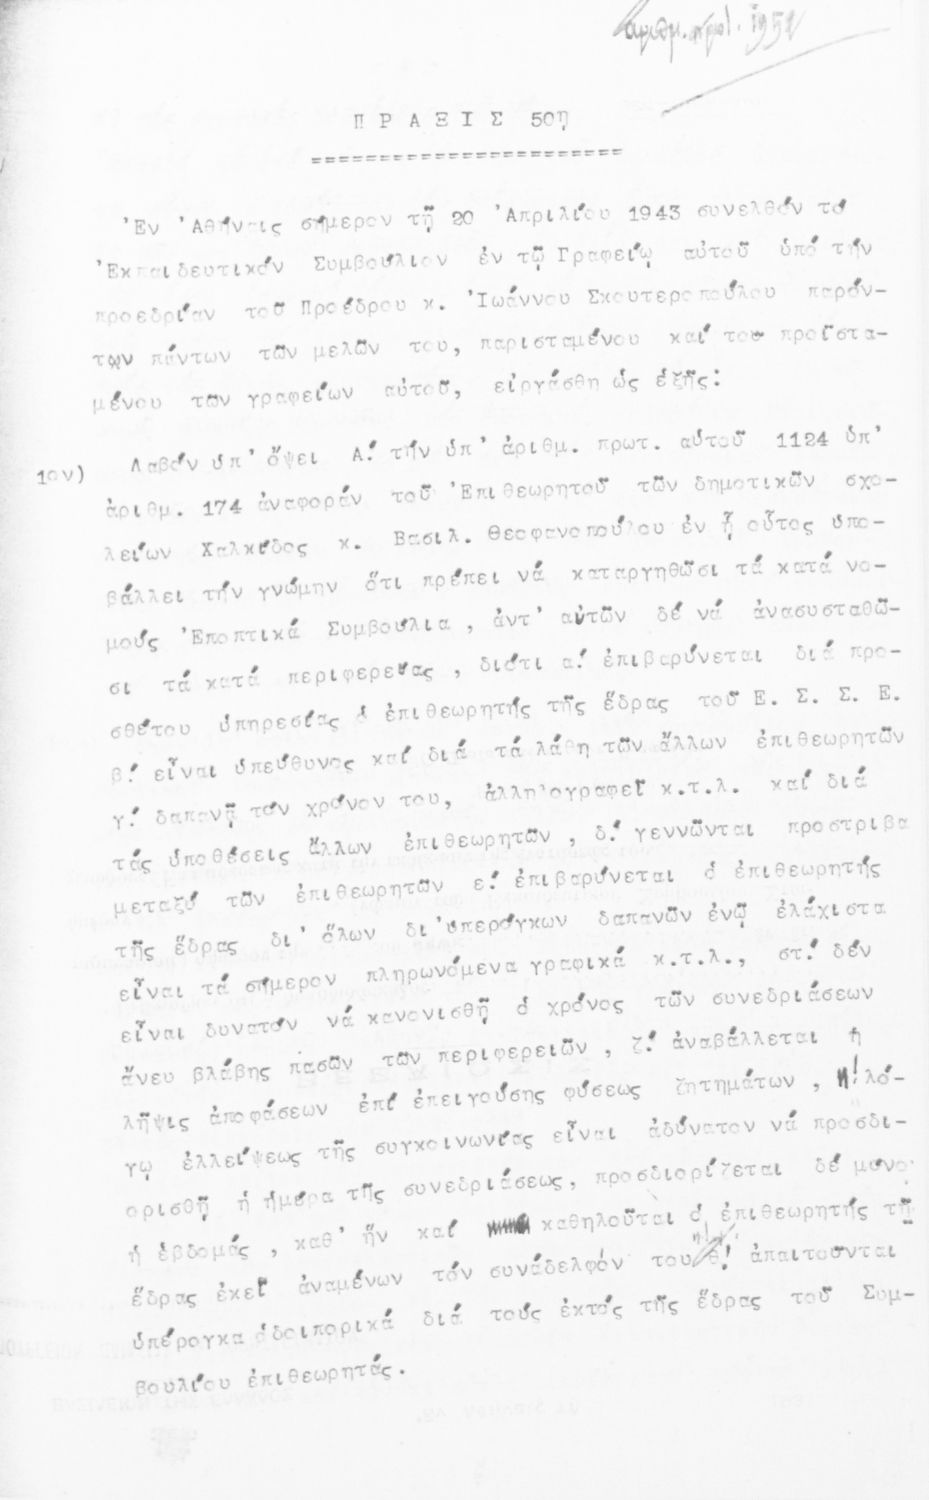 ἀριθμ. πρωτ. 1952
ΠΡΑΞΙΣ 50ῃ
=======================
Ἐν Ἀθήναις σήμερον τῇ 20 Ἀπριλίου 1943 συνελθόν τό
Ἐκπαιδευτικόν Συμβούλιον ἐν τῷ Γραφείῳ αὐτοῦ ὑπό τήν
προεδρίαν τοῦ Προέδρου κ. Ἰωάννου Σκουτεροπούλου παρόν-
των πάντων τῶν μελῶν του, παρισταμένου καί του προϊστα-
μένου τῶν γραφείων αὐτοῦ, εἰργάσθη ὡς ἑξῆς:
1ον) Λαβόν ὑπ' ὄψει Α.' τήν ὑπ' ἀριθμ. πρωτ. αὐτοῦ 1124 ὑπ'
ἀριθμ. 174 ἀναφοράν τοῦ Ἐπιθεωρητοῦ τῶν δημοτικῶν σχο-
λείων Χαλκίδος κ. Βασιλ. Θεοφανοπούλου ἐν ᾗ οὗτος ὑπο-
βάλλει τήν γνώμην ὅτι πρέπει νά καταργηθῶσι τά κατά νο-
μούς Ἐποπτικά Συμβούλια , ἀντ' αὐτῶν δέ νά ἀνασυσταθῶ-
σι τά κατά περιφερείας , διότι α.' ἐπιβαρύνεται διά προ-
σθέτου ὑπηρεσίας ὁ ἐπιθεωρητής τῆς ἕδρας τοῦ Ε. Σ. Σ. Ε.
β.' εἶναι ὑπεύθυνος καί διά τά λάθη τῶν ἄλλων ἐπιθεωρητῶν
γ.' δαπανᾷ τόν χρόνον του, ἀλληλογραφεῖ κ.τ.λ. καί διά
τάς ὑποθέσεις ἄλλων ἐπιθεωρητῶν , δ.' γεννῶνται προστριβα
μεταξύ τῶν ἐπιθεωρητῶν ε.' ἐπιβαρύνεται ὁ ἐπιθεωρητής
τῆς ἕδρας δι' ὅλων δι' ὑπερόγκων δαπανῶν ἐνῷ ἐλάχιστα
εἶναι τά σήμερον πληρωνόμενα γραφικά κ.τ.λ., στ.' δέν
εἶναι δυνατόν νά κανονισθῇ ὁ χρόνος τῶν συνεδριάσεων
ἄνευ βλάβης πασῶν τῶν περιφερειῶν , ζ.' ἀναβάλλεται ἡ
λῆψις ἀποφάσεων ἐπί ἐπειγούσης φύσεως ζητημάτων , η.' λό-
γῳ ἐλλείψεως τῆς συγκοινωνίας εἶναι ἀδύνατον νά προσδι-
ορισθῇ ἡ ἡμέρα τῆς συνεδριάσεως, προσδιορίζεται δέ μόνο
ἡ ἑβδομάς , καθ' ἥν καί καθηλοῦται ὁ ἐπιθεωρητής τῇ
ἕδρας ἐκεῖ ἀναμένων τόν συνάδελφόν του θ.' ἀπαιτοῦνται
ὑπέρογκα ὁδοιπορικά διά τούς ἐκτός τῆς ἕδρας τοῦ Συμ-
βουλίου ἐπιθεωρητάς.